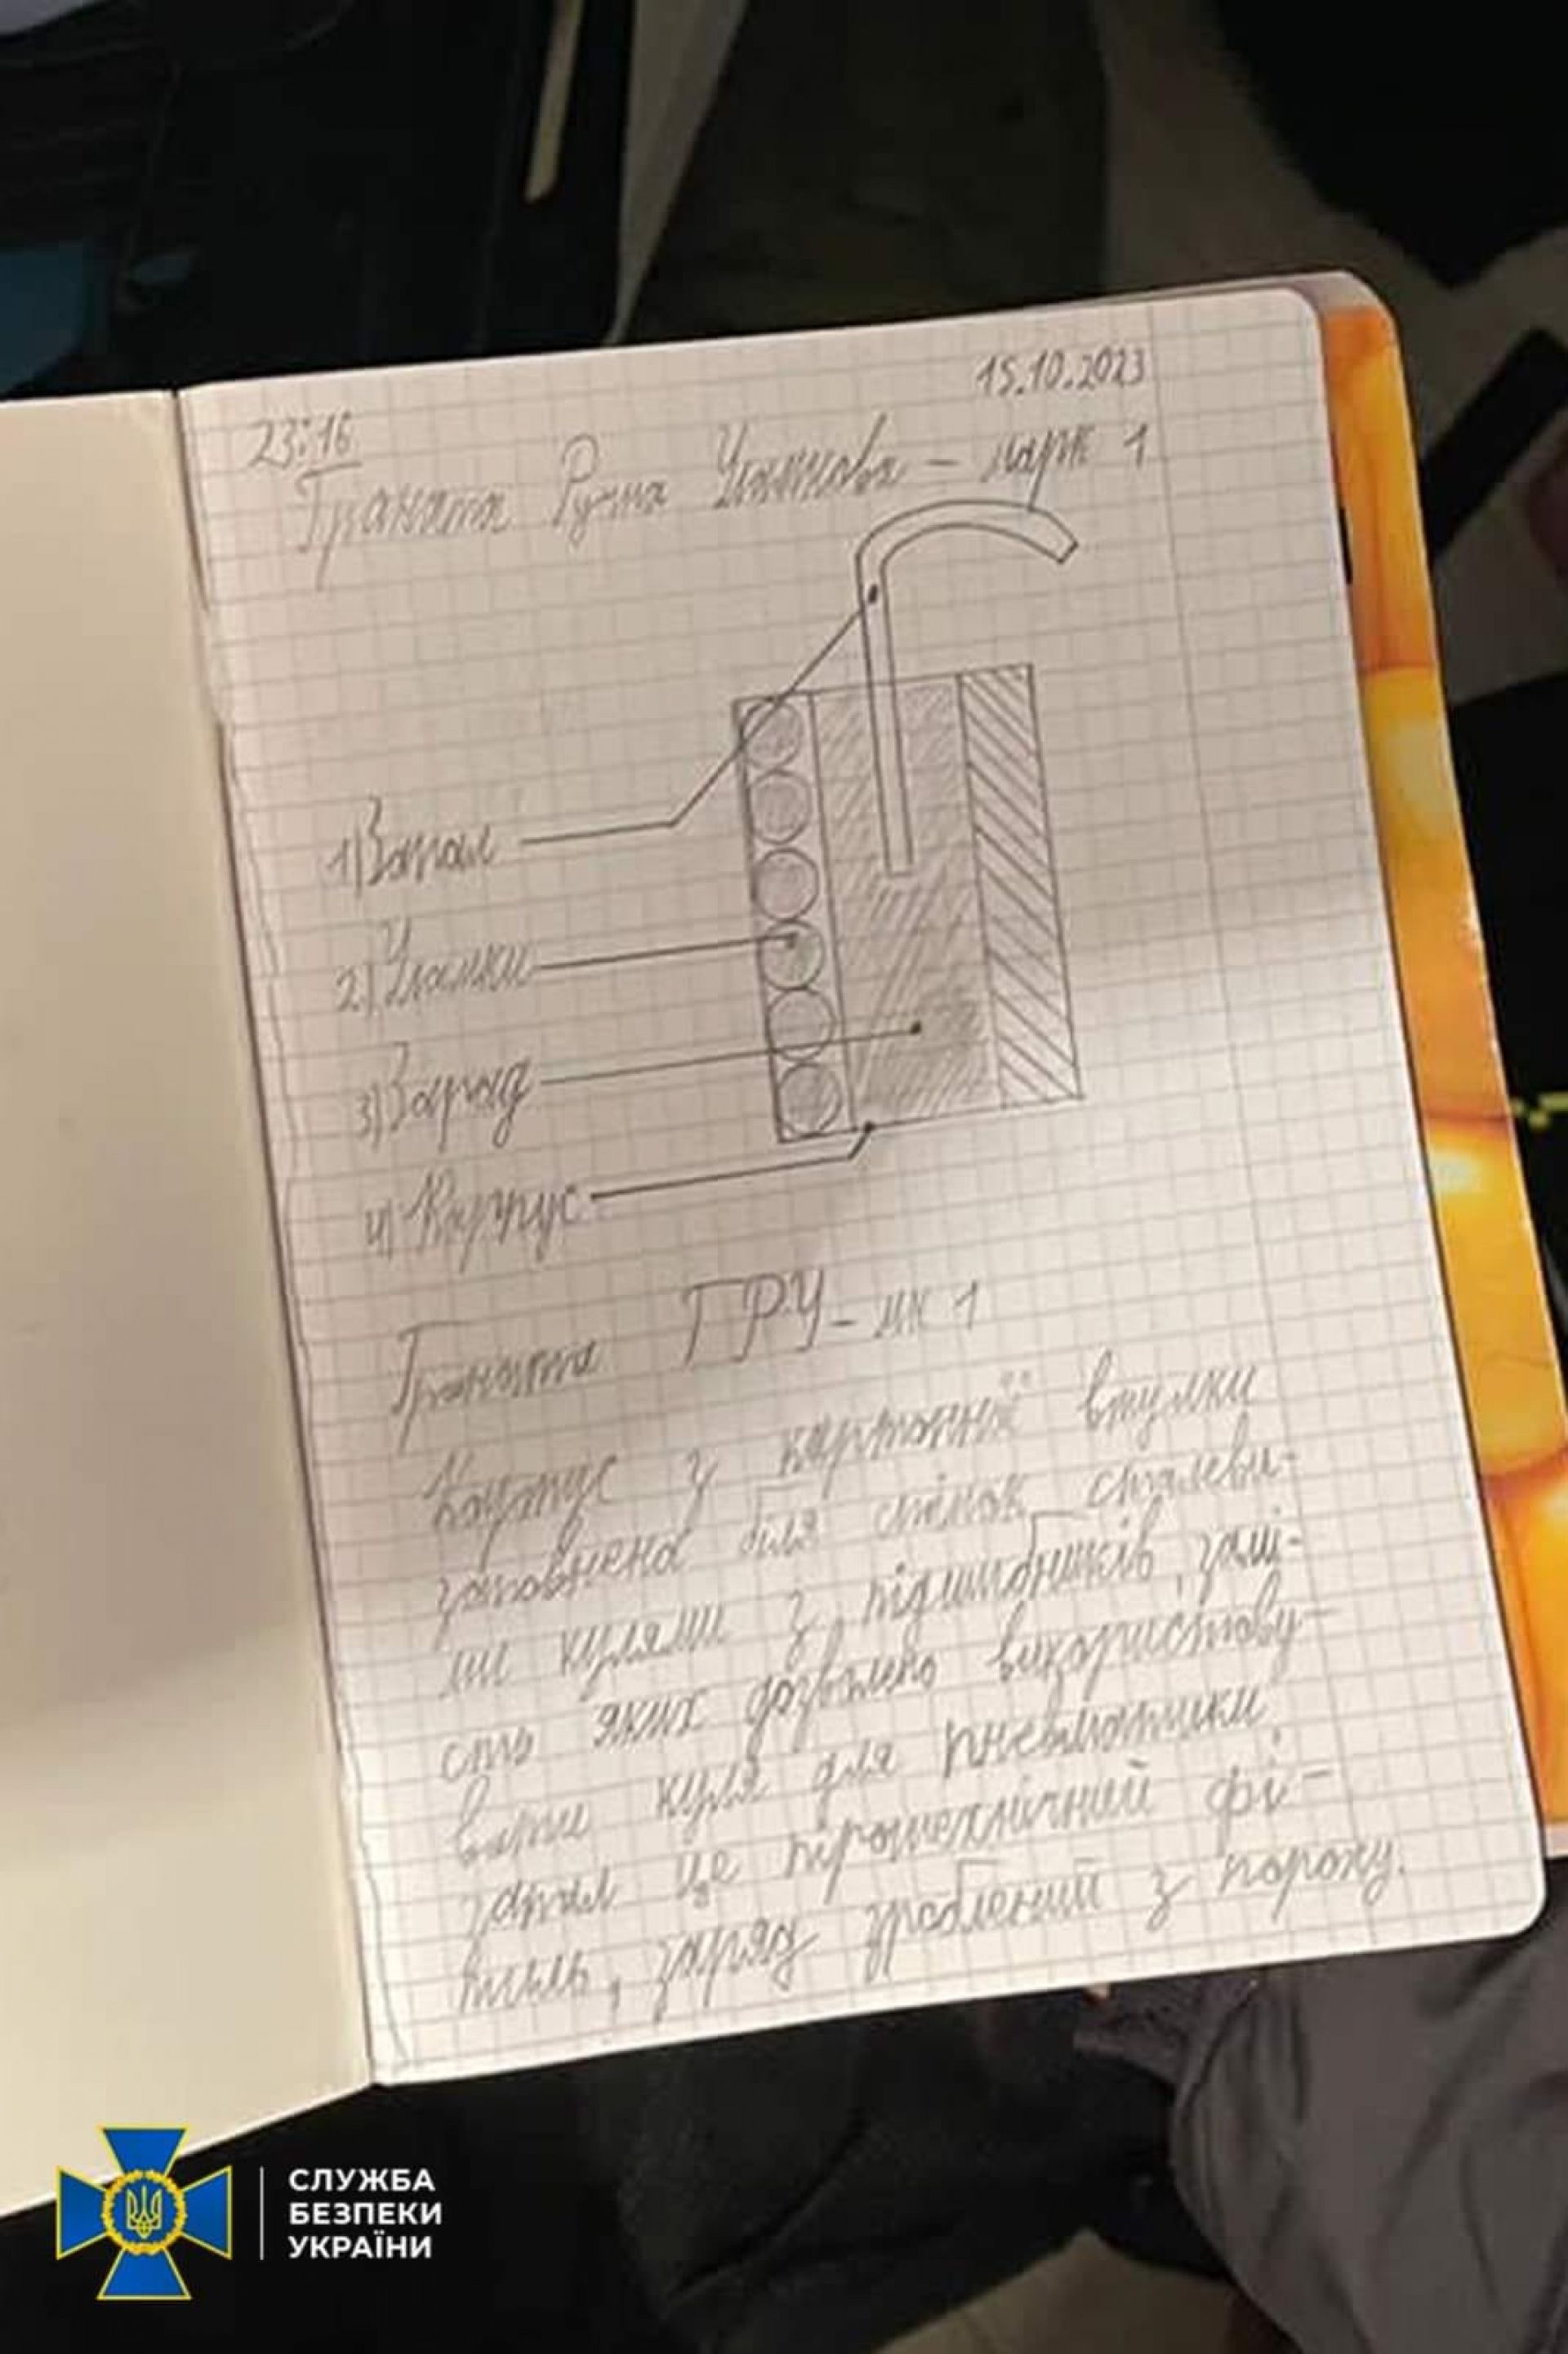 15.10.2023
23:16
Граната Ручна Уламкова – марк 1
1) Запал
2) Уламки
3) Заряд
4) Корпус
Граната ГРУ – мк 1
Корпус з картонної втулки
заповнена біля стінок сталеви-
ми кулями з підшибників, замі-
сть яких дозволено використову-
вати кулі для пневматики,
запал це піротехнічний фі-
тиль, заряд зроблений з пороху.
СЛУЖБА
БЕЗПЕКИ
УКРАЇНИ